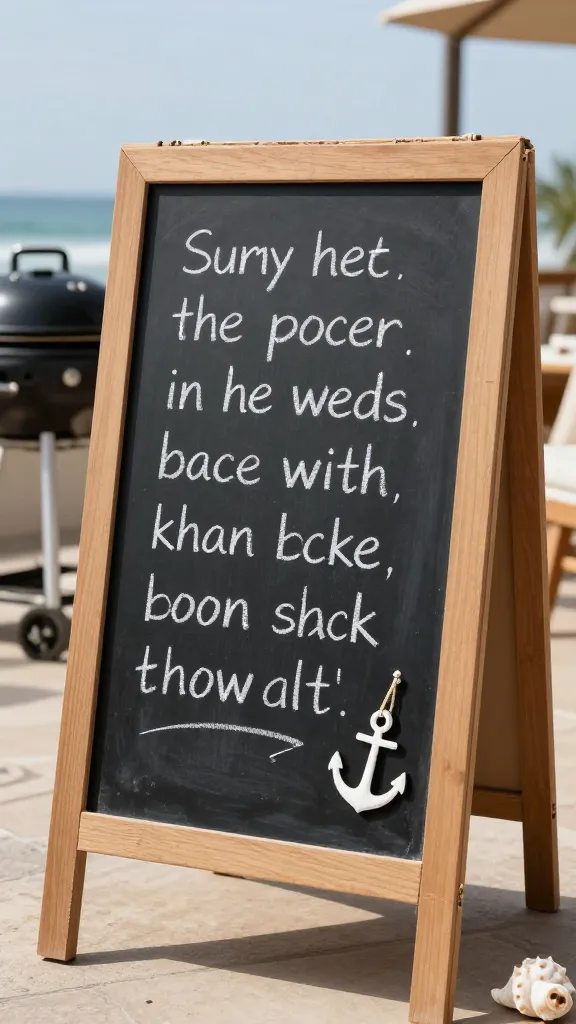 Sumy het.
the pocer.
in he weds,
bace with,
khan bcke,
boon shck
thow alt!